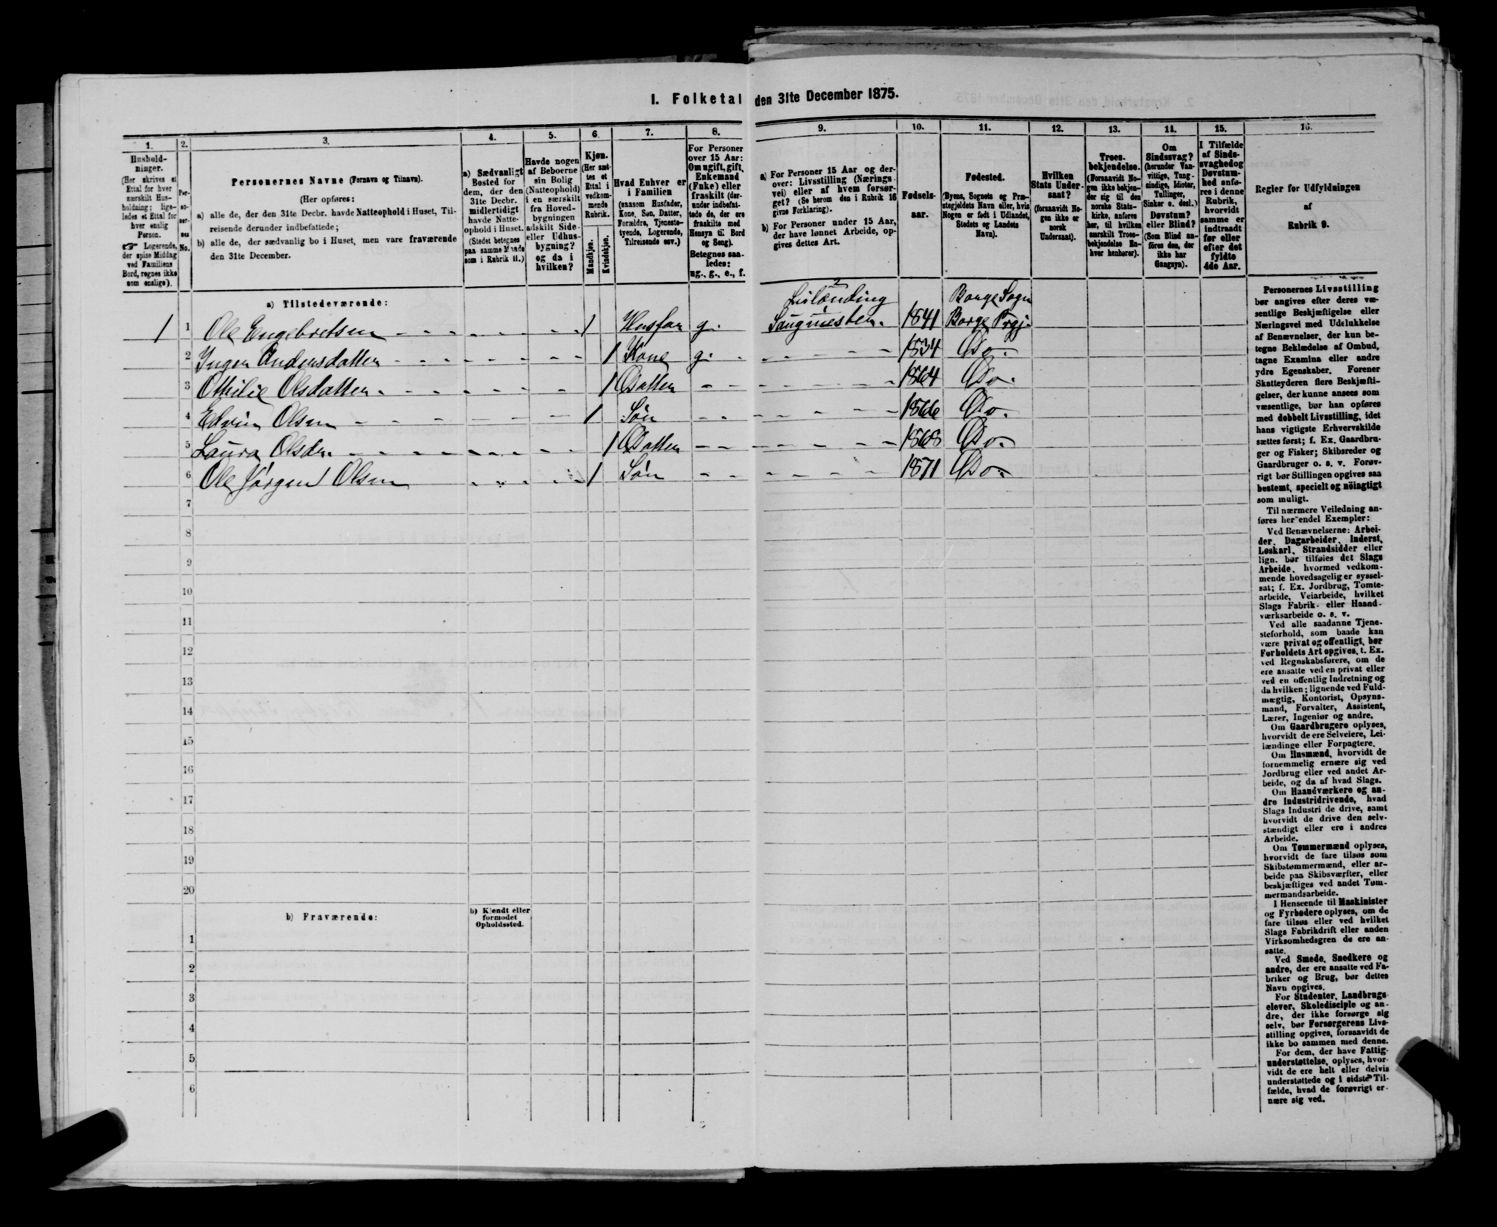 I. Folketal den 31te December 1875.
1.
Hushold-
ninger.
(Her skrives et
Ettal for hver
særskilt Hus-
holdning; lige-
ledes et Ettal for
hver enslig
Person.
☞ Logerende,
der spise Middag
ved Familiens
Bord, regnes ikke
som enslige).
2.
Per-
so-
ner-
nes
No.
3.
Personernes Navne (Fornavn og Tilnavn).
(Her opføres:
a) alle de, der den 31te Decbr. havde Natteophold i Huset, Til-
reisende derunder indbefattede;
b) alle de, der sædvanlig bo i Huset, men vare fraværende
den 31te December.
4.
a) Sædvanligt
Bosted for
dem, der den
31te Decbr.
midlertidigt
havde Natte-
ophold i Huset.
(Stedet betegnes
paa samme Maade
som i Rubrik 11.)
5.
Havde nogen
af Beboerne
sin Bolig
(Natteophold)
i en særskilt
fra Hoved-
bygningen
adskilt Side-
eller Udhus-
bygning?
og da i
hvilken?
6.
Kjøn.
(Her sæt-
tes et
Ettal i
vedkom-
mende
Rubrik.
Mandkjøn.
Kvindekjøn.
7.
Hvad Enhver er
i Familien
(saasom Husfader,
Kone, Søn, Datter,
Forældre, Tjeneste-
tyende, Logerende,
Tilreisende osv.)
8.
For Personer
over 15 Aar:
Om ugift, gift,
Enkemand
(Enke) eller
fraskilt (der-
under indbefat-
tede de, der ere
fraskilte med
Hensyn til Bord
og Seng).
Betegnes saa-
ledes:
ug., g., e., f.
9.
a) For Personer 15 Aar og der-
over: Livsstilling (Nærings-
vei) eller af hvem forsør-
get? (Se herom den i Rubrik 16
givne Forklaring).
b) For Personer under 15 Aar,
der have lønnet Arbeide, op-
gives dettes Art.
10.
Fødsels-
aar.
11.
Fødested.
(Byens, Sognets og Præ-
stegjeldets Navn eller, hvis
Nogen er født i Udlandet,
Stedets og Landets
Navn).
12.
Hvilken
Stats Under-
saat?
(forsaavidt No-
gen ikke er
norsk
Undersaat).
13.
Troes-
bekjendelse.
(Forsaavidt No-
gen ikke bekjen-
der sig til den
norske Stats-
kirke, anføres
her, til hvilken
særskilt Troes-
bekjendelse En-
hver henhører).
14.
Om
Sindssvag?
(herunder Van-
vittige, Tung-
sindige, Idioter,
Tullinger,
Sinker o. desl.)
Døvstum?
eller Blind?
(Som Blind an-
føres den, der
ikke har
Gangsyn).
15.
I Tilfælde
af Sinds-
svaghed og
Døvstum-
hed anfø-
res i denne
Rubrik,
hvorvidt
samme er
indtraadt
før eller
efter det
fyldte
4de Aar.
16.
Regler for Udfyldningen
af
Rubrik 9.
a) Tilstedeværende:
Leilænding Borge Sogn
1 1 Ole Engebretsen 1 Husfar g. Saugmester. 1841 Borge Prgj.
2 Inger Andersdatter 1 Kone g. 1834 Do.
3 Othilie Olsdatter 1 Datter 1864 Do.
4 Edvin Olsen 1 Søn 1866 Do.
5 Laura Olsdr. 1 Datter 1868 Do.
6 Ole Jørgen Olsen 1 Søn 1871 Do.
7
8
9
10
11
12
13
14
15
16
17
18
19
20
b) Fraværende:
b) Kjendt eller
formodet
Opholdssted.
1
2
3
4
5
6
Personernes Livsstilling
bør angives efter deres væ-
sentlige Beskjæftigelse eller
Næringsvei med Udelukkelse
af Benævnelser, der kun be-
tegne Beklædelse af Ombud,
tagne Examina eller andre
ydre Egenskaber. Forener
Skatteyderen flere Beskjæfti-
gelser, der kunne ansees som
væsentlige, bør han opføres
med dobbelt Livsstilling, idet
hans vigtigste Erhvervskilde
sættes først; f. Ex. Gaardbru-
ger og Fisker; Skibsreder og
Gaardbruger o. s. v. Forøv-
rigt bør Stillingen opgives saa
bestemt, specielt og nöiagtigt
som muligt.
Til nærmere Veiledning an-
føres her endel Exempler:
Ved Benævnelserne: Arbei-
der, Dagarbeider, Inderst,
Løskarl, Strandsidder eller
lign. bør tilføies det Slags
Arbeide, hvormed vedkom-
mende hovedsagelig er syssel-
sat; f. Ex. Jordbrug, Tomte-
arbeide, Veiarbeide, hvilket
Slags Fabrik- eller Haand-
værksarbeide o. s. v.
Ved alle saadanne Tjene-
steforhold, som baade kan
være privat og offentligt, bør
Forholdets Art opgives, t. Ex.
ved Regnskabsførere, om de
ere ansatte ved en privat eller
ved en offentlig Indretning og
da hvilken; lignende ved Fuld-
mægtig, Kontorist, Opsyns-
mand, Forvalter, Assistent,
Lærer, Ingeniør og andre.
Om Gaardbrugere oplyses,
hvorvidt de ere Selveiere, Lei-
lændinge eller Forpagtere.
Om Husmænd, hvorvidt de
fornemmelig ernære sig ved
Jordbrug eller ved andet Ar-
beide, og da af hvad Slags.
Om Haandværkere og an-
dre Industridrivende, hvad
Slags Industri de drive, samt
hvorvidt de drive den selv-
stændigt eller ere i andres
Arbeide.
Om Tømmermænd oplyses,
hvorvidt de fare tilsøs som
Skibstømmermænd, eller ar-
beide paa Skibsværfter, eller
beskjæftiges ved andet Tøm-
mermandsarbeide.
I Henseende til Maskinister
og Fyrbødere oplyses, om de
fare tilsøs eller ved hvilket
Slags Fabrikdrift eller anden
Virksomhedsgren de ere an-
satte.
Ved Smede, Snedkere og
andre, der ere ansatte ved Fa-
briker og Brug, bør dettes
Navn opgives.
For Studenter, Landbrugs-
elever, Skoledisciple og an-
dre, der ikke forsørge sig
selv, bør Forsørgerens Livs-
stilling opgives, forsaavidt de
ikke bo sammen med denne.
For dem, der have Fattig-
understøttelse, oplyses, hvor-
vidt de ere helt eller delvis
understøttede og i sidste Til-
fælde, hvad de forøvrigt er-
nære sig ved.